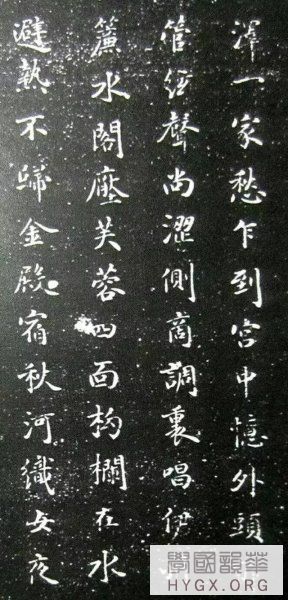 渾一家愁乍到宮中憶外頭
管絃聲尚澀側商調裏唱伊
簾水閣壓芙蓉四面枸欄在水
避熱不歸金殿宿秋河織女夜
華韻國學
HYGX.ORG